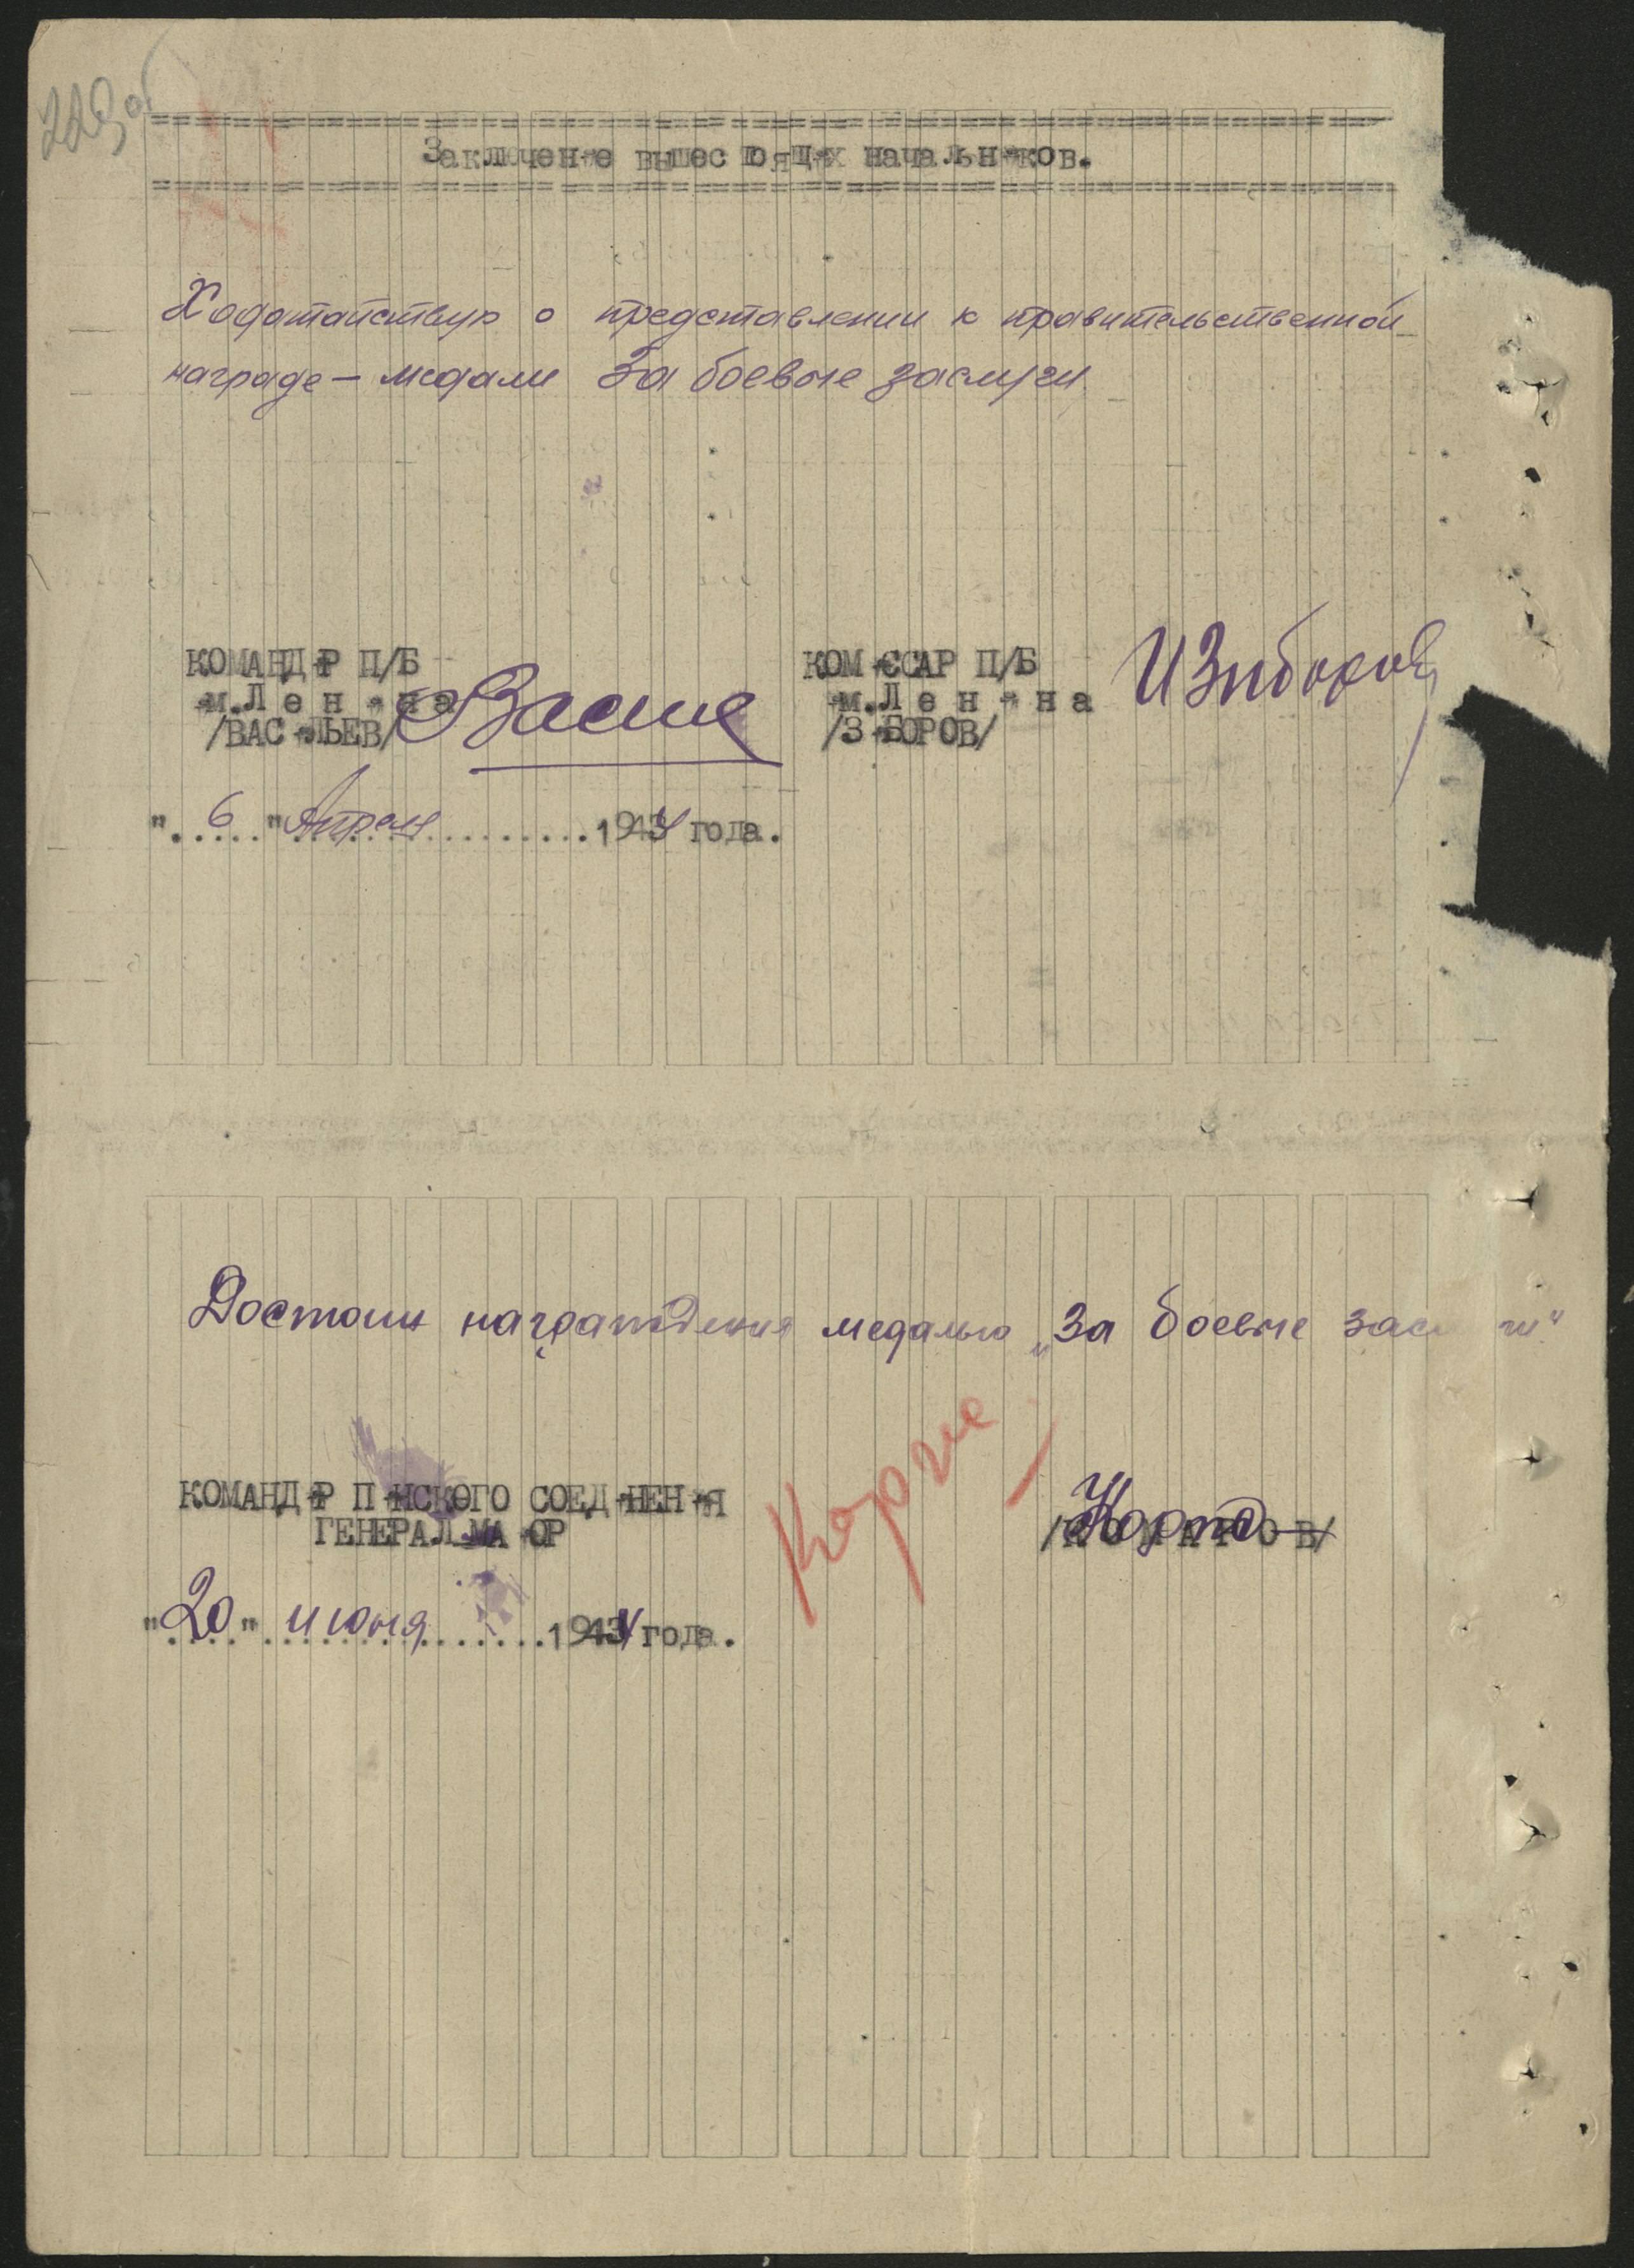 223об
Заключение вышестоящих начальников.
Ходатайствую о представлении к правительственной
награде – медали За боевые заслуги
КОМАНДИР П/Б
им.Ленина
/ВАСИЛЬЕВ/
КОМИССАР П/Б
им.Ленина
/ЗИБОРОВ/
"6" Апреля 1944 года.
Достоин награждения медалью „За боевые зас ги"
КОМАНДИР ПИНСКОГО СОЕДИНЕНИЯ
ГЕНЕРАЛ МАЙОР
"20" июня 1944 года.